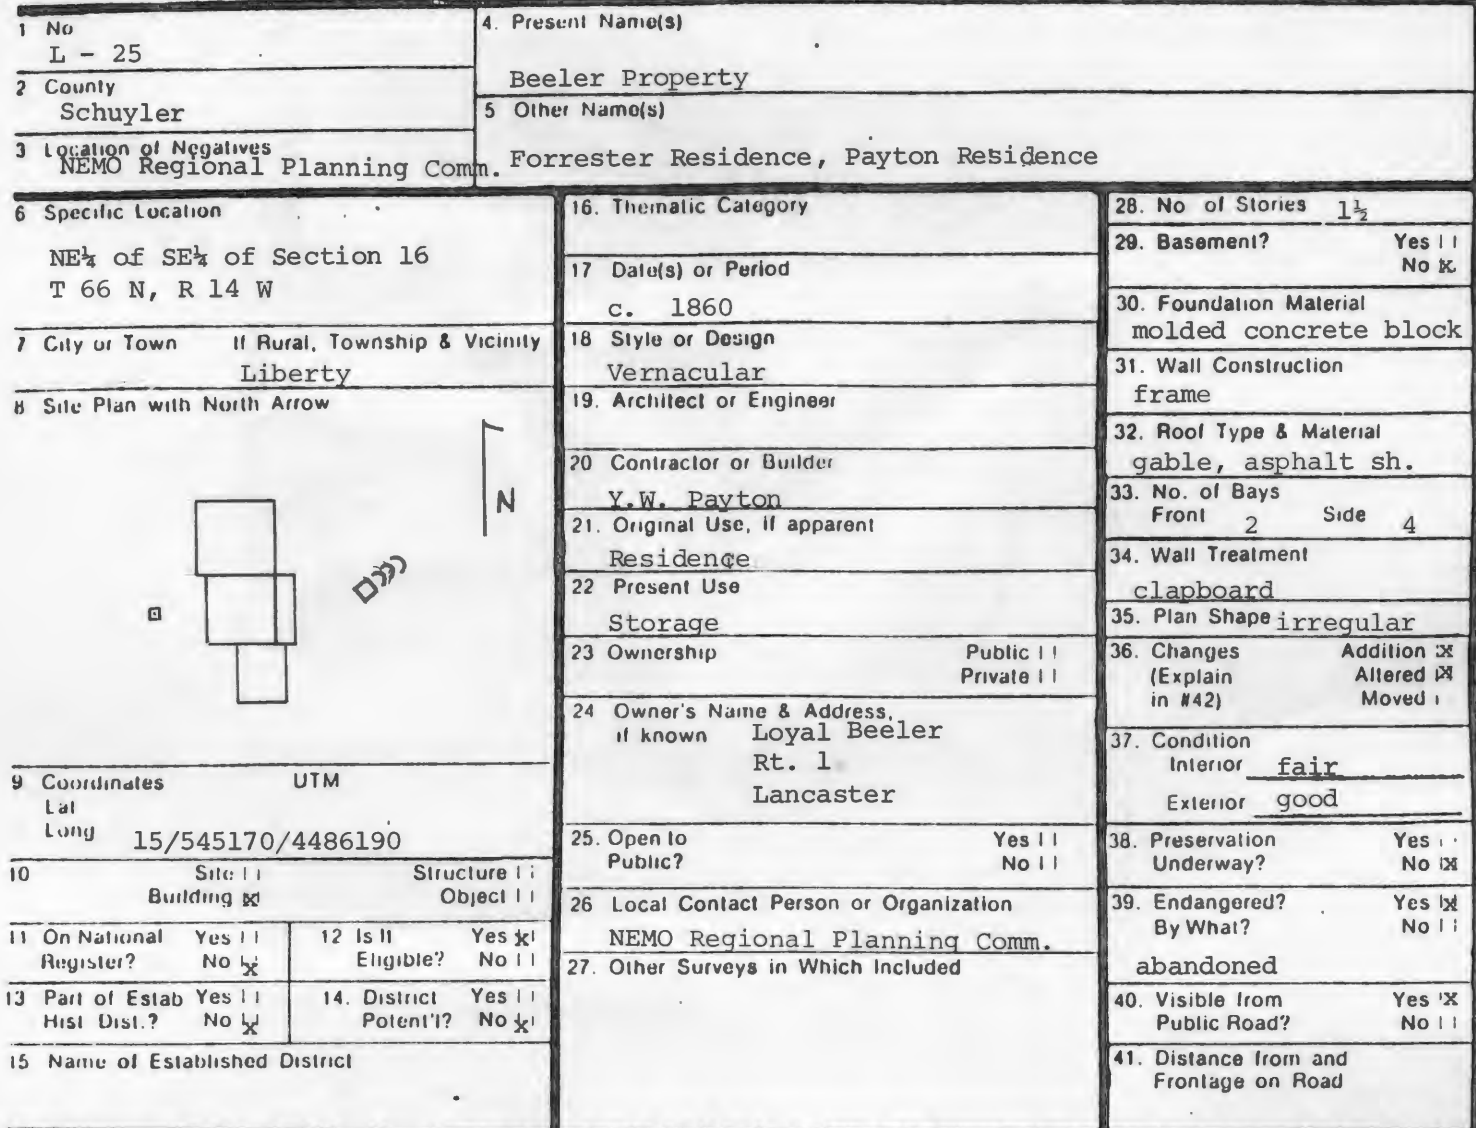 1 No
L - 25
2 County
Schuyler
3 Location of Negatives
NEMO Regional Planning Comm.
4. Present Name(s)
Beeler Property
5 Other Name(s)
Forrester Residence, Payton Residence
6 Specific Location
NE¼ of SE¼ of Section 16
T 66 N, R 14 W
7 City or Town If Rural, Township & Vicinity
Liberty
8 Site Plan with North Arrow
N
9 Coordinates UTM
Lat
Long 15/545170/4486190
10 Site Structure
Building x Object
11 On National Yes
Register? No x
12 Is It Yes x
Eligible? No
13 Part of Estab Yes
Hist Dist.? No x
14. District Yes
Potent'l? No x
15 Name of Established District
16. Thematic Category
17 Date(s) or Period
c. 1860
18 Style or Design
Vernacular
19. Architect or Engineer
20 Contractor or Builder
Y.W. Payton
21. Original Use, if apparent
Residence
22 Present Use
Storage
23 Ownership Public
Private
24 Owner's Name & Address,
if known Loyal Beeler
Rt. 1
Lancaster
25. Open to Yes
Public? No
26 Local Contact Person or Organization
NEMO Regional Planning Comm.
27. Other Surveys in Which Included
28. No of Stories 1½
29. Basement? Yes
No x
30. Foundation Material
molded concrete block
31. Wall Construction
frame
32. Roof Type & Material
gable, asphalt sh.
33. No. of Bays
Front 2 Side 4
34. Wall Treatment
clapboard
35. Plan Shape irregular
36. Changes Addition x
(Explain Altered x
in #42) Moved
37. Condition
Interior fair
Exterior good
38. Preservation Yes
Underway? No x
39. Endangered? Yes x
By What? No
abandoned
40. Visible from Yes x
Public Road? No
41. Distance from and
Frontage on Road